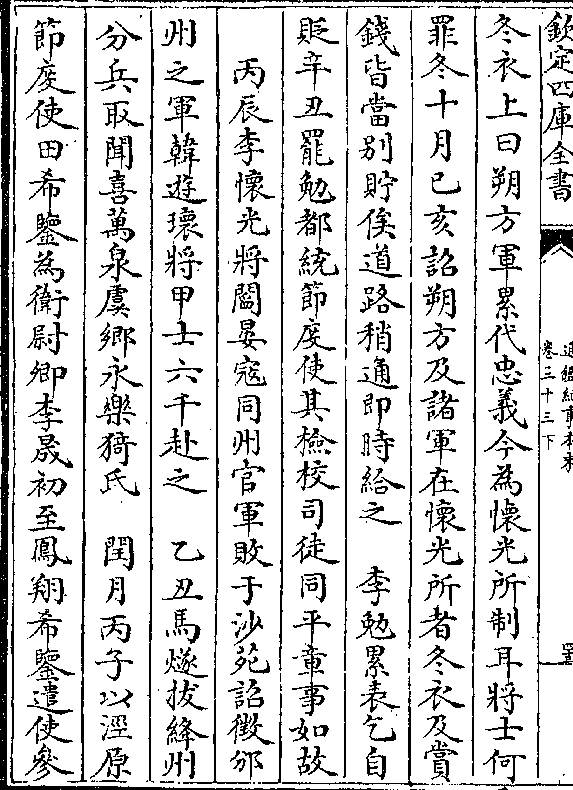 欽定四庫全書
通鑑紀事本末
卷三十三下
冬衣上曰朔方軍累代忠義今為懷光所制耳將士何
罪冬十月己亥詔朔方及諸軍在懷光所者冬衣及賞
錢皆當别貯俟道路稍通即時給之　李勉累表乞自
貶辛丑罷勉都統節度使其檢校司徒同平章事如故
丙辰李懷光將閻晏寇同州官軍敗于沙苑詔徵邠
州之軍韓遊瓌將甲士六千赴之　乙丑馬燧拔絳州
分兵取聞喜萬泉虞鄉永樂猗氏　閏月丙子以涇原
節度使田希鑒為衛尉卿李晟初至鳳翔希鑒遣使參